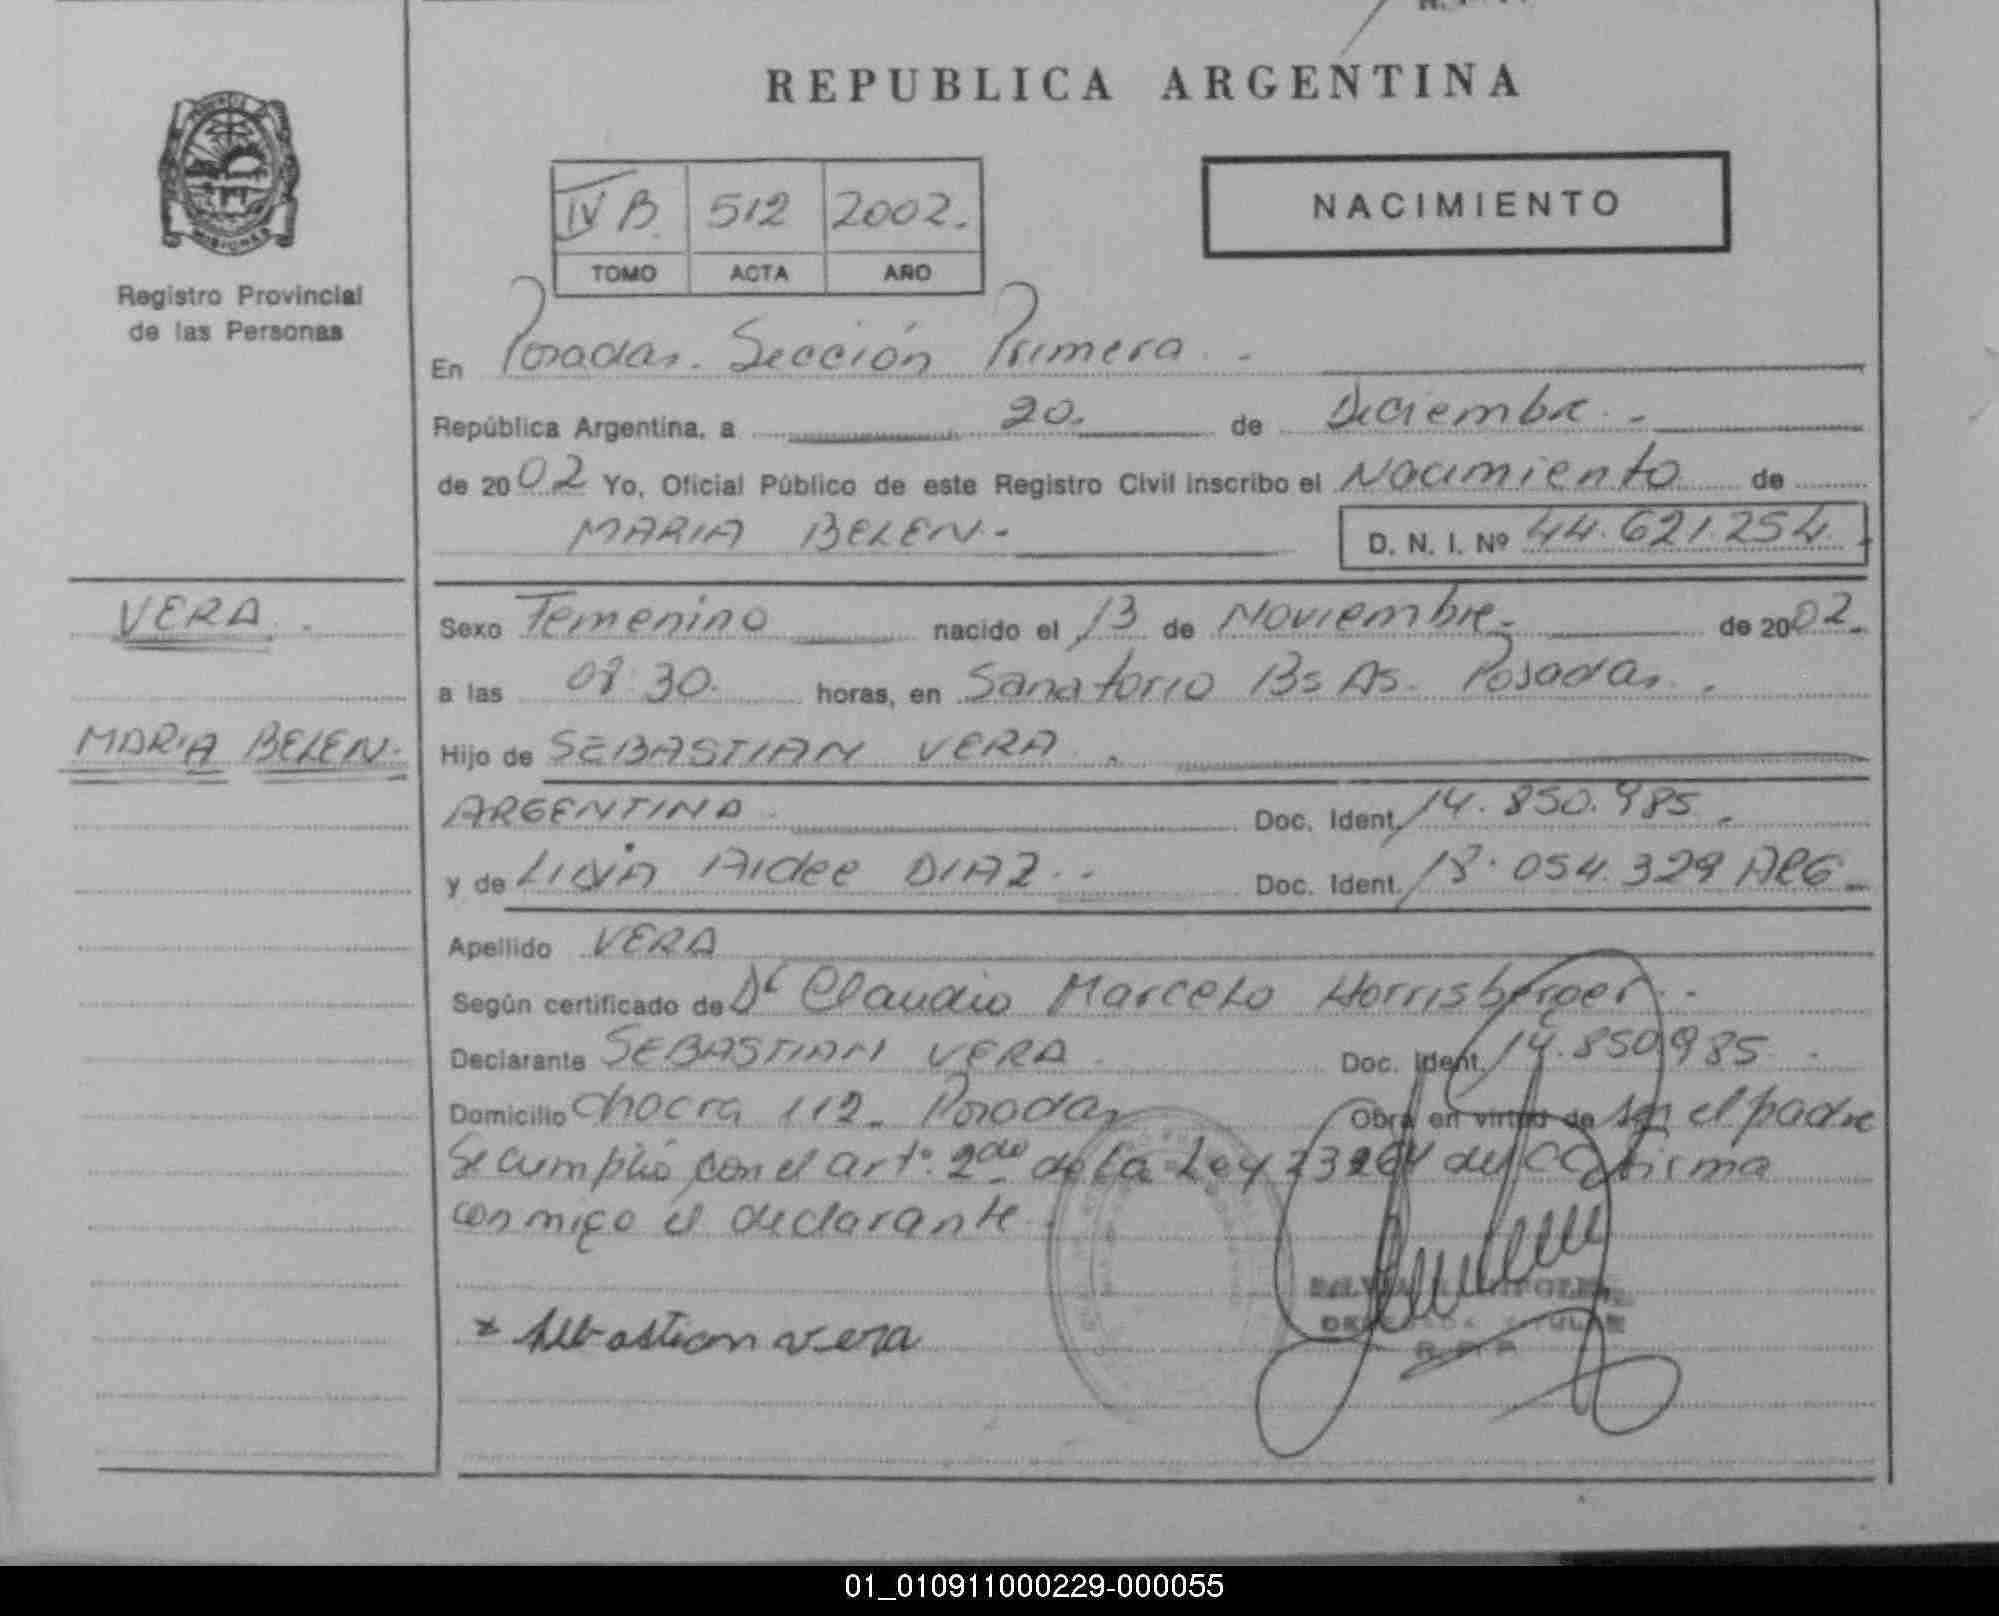 REPUBLICA ARGENTINA
MISIONES
Registro Provincial
de las Personas
IV B. 512 2002.
TOMO ACTA AÑO
NACIMIENTO
En Posadas. Sección Primera.-
República Argentina, a 20. de Diciembre.-
de 2002 Yo, Oficial Público de este Registro Civil inscribo el Nacimiento de
MARIA BELEN.- D. N. I. Nº 44.621.254.
VERA.
MARIA BELEN.
Sexo Femenino nacido el 13 de Noviembre.- de 2002.
a las 08:30. horas, en Sanatorio Bs As. Posadas.
Hijo de SEBASTIAN VERA.
ARGENTINA. Doc. Ident. 14.850.985.
y de Aidee DIAZ.- Doc. Ident. 18.054.329 ARG.
Apellido VERA
Según certificado de Dr Claudio Marcelo Horrisberger.-
Declarante SEBASTIAN VERA. Doc. Ident. 14.850.985.
Domicilio Chacra 112.- Posadas Obra en virtud de ser el padre
Se cumplió con el artº. 2do de la Ley 23264 del CC firma
conmigo el declarante.
* Sebastian vera
TITULAR
R. P. P.
01_010911000229-000055